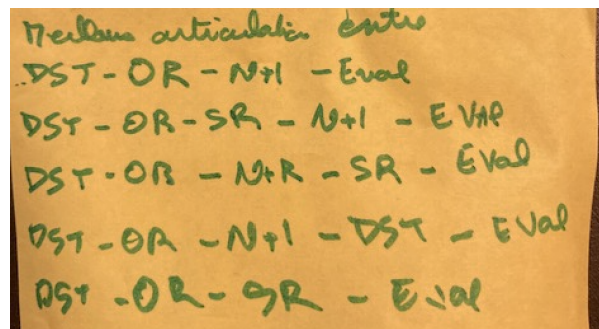 Meilleure articulation entre
DST - OR - N+1 - Eval
DST - OR - SR - N+1 - EVAl
DST - OR - N+R - SR - EVal
DST - OR - N+1 - DST - EVal
DST - OR - SR - Eval